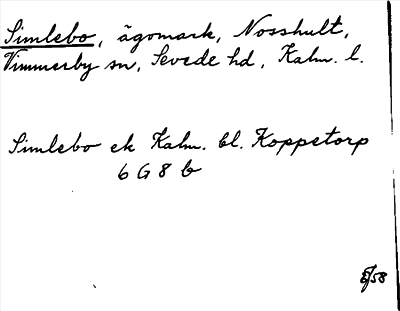 Simlebo, ägomark, Nosshult,
Vimmerby sn, Sevede hd, Kalm. l.
Simlebo ek Kalm. bl. Koppetorp
6 G 8 b
/58